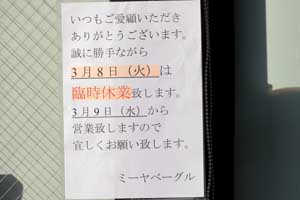 いつもご愛顧いただき
ありがとうございます。
誠に勝手ながら
3月8日（火）は
臨時休業致します。
3月9日（水）から
営業致しますので
宜しくお願い致します。
ミーヤベーグル